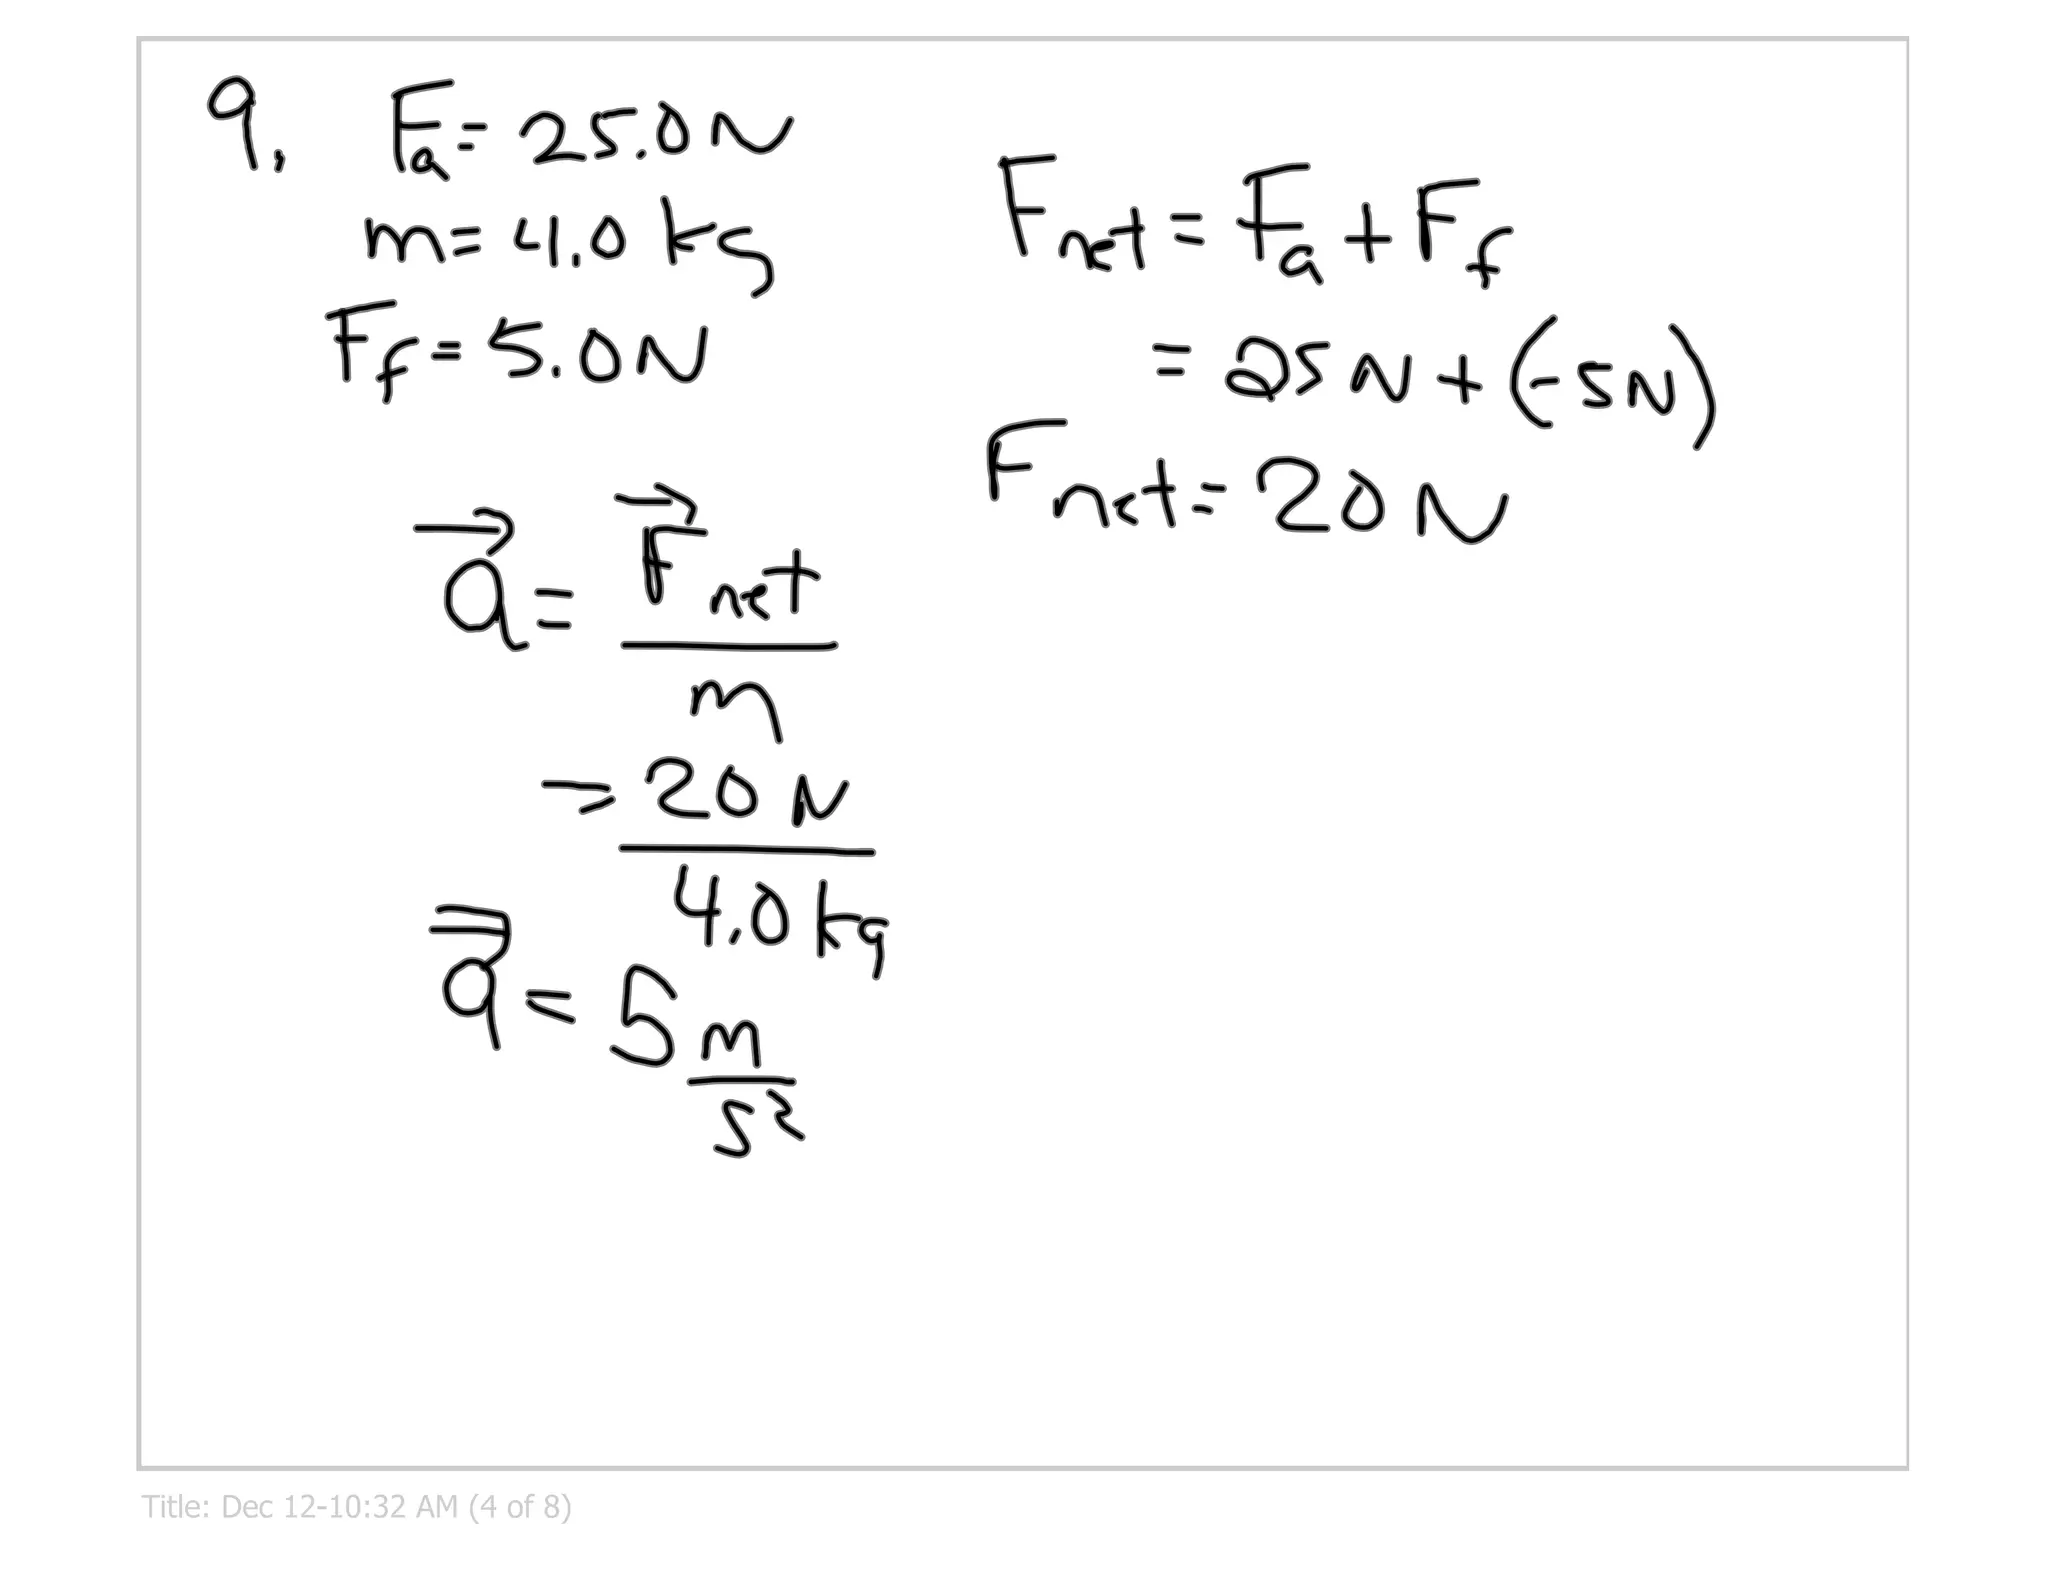 9. Fa = 25.0N
m = 4.0 kg
Ff = 5.0N
Fnet = Fa + Ff
= 25N + (-5N)
Fnet = 20N
a⃗ = F⃗net
m
= 20N
4.0kg
a⃗ = 5 m
s²
Title: Dec 12-10:32 AM (4 of 8)